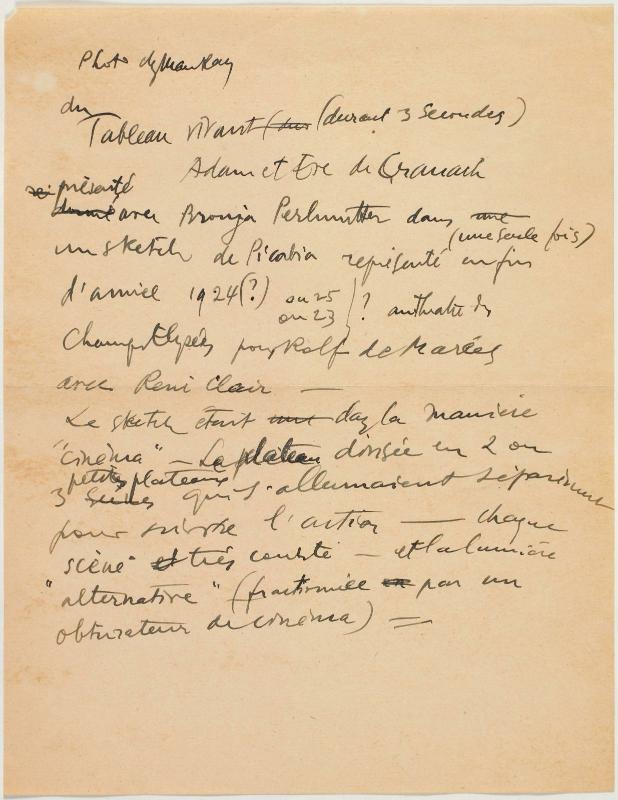 Photo de Man Ray
du
Tableau vivant (dur (durant 3 Secondes)
Adam et Eve de Cranach
présenté
donné avec Bronja Perlmutter dans une
(une seule fois)
un sketch de Picabia représenté en fin
d'année 1924(?) ou 25
ou 23 ? au théatre des
Champs Elysées pour Rolf de Marées
avec René Clair —
Le sketch était une ds la manière
"cinéma" — Le plateau divisée en 2 ou
petits plateaux
3 Scènes qui s'allumaient séparément
pour suivre l'action — chaque
scène et très courte — et la lumière
"alternative" (fractionnée en par un
obturateur de cinéma) =